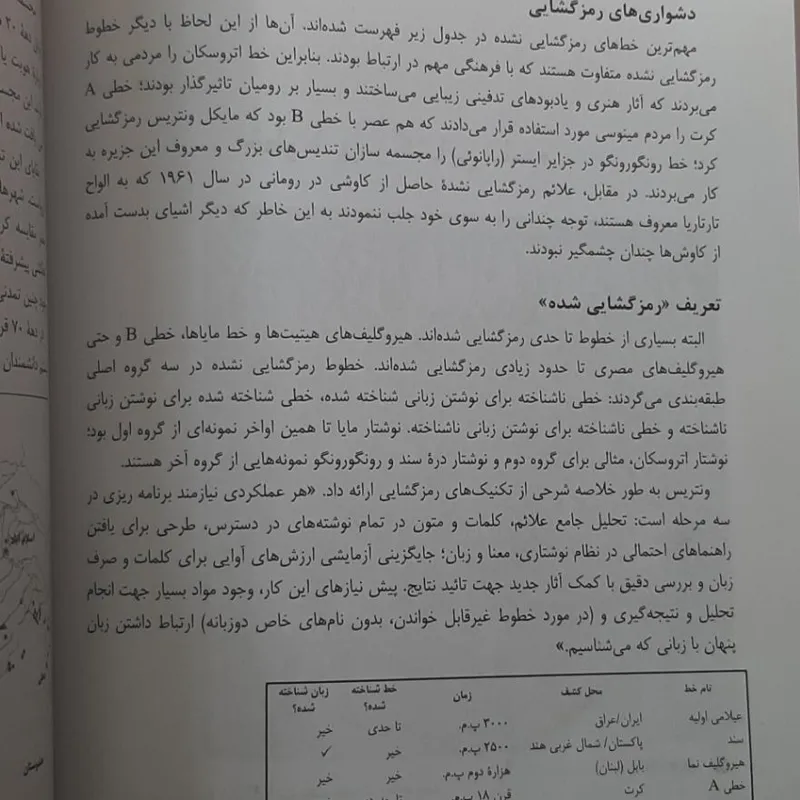 دشواری‌های رمزگشایی
مهم‌ترین خط‌های رمزگشایی نشده در جدول زیر فهرست شده‌اند. آن‌ها از این لحاظ با دیگر خطوط
رمزگشایی نشده متفاوت هستند که با فرهنگی مهم در ارتباط بودند. بنابراین خط اتروسکان را مردمی به کار
می‌بردند که آثار هنری و یادبودهای تدفینی زیبایی می‌ساختند و بسیار بر رومیان تاثیرگذار بودند؛ خطی A
کرت را مردم مینوسی مورد استفاده قرار می‌دادند که هم عصر با خطی B بود که مایکل ونتریس رمزگشایی
کرد؛ خط رونگورونگو در جزایر ایستر (راپانوئی) را مجسمه سازان تندیس‌های بزرگ و معروف این جزیره به
کار می‌بردند. در مقابل، علائم رمزگشایی نشدهٔ حاصل از کاوشی در رومانی در سال ۱۹۶۱ که به الواح
تارتاریا معروف هستند، توجه چندانی را به سوی خود جلب ننمودند به این خاطر که دیگر اشیای بدست آمده
از کاوش‌ها چندان چشمگیر نبودند.
تعریف «رمزگشایی شده»
البته بسیاری از خطوط تا حدی رمزگشایی شده‌اند. هیروگلیف‌های هیتیت‌ها و خط مایاها، خطی B و حتی
هیروگلیف‌های مصری تا حدود زیادی رمزگشایی شده‌اند. خطوط رمزگشایی نشده در سه گروه اصلی
طبقه‌بندی می‌گردند: خطی ناشناخته برای نوشتن زبانی شناخته شده، خطی شناخته شده برای نوشتن زبانی
ناشناخته و خطی ناشناخته برای نوشتن زبانی ناشناخته. نوشتار مایا تا همین اواخر نمونه‌ای از گروه اول بود؛
نوشتار اتروسکان، مثالی برای گروه دوم و نوشتار درهٔ سند و رونگورونگو نمونه‌هایی از گروه آخر هستند.
ونتریس به طور خلاصه شرحی از تکنیک‌های رمزگشایی ارائه داد. «هر عملکردی نیازمند برنامه ریزی در
سه مرحله است: تحلیل جامع علائم، کلمات و متون در تمام نوشته‌های در دسترس، طرحی برای یافتن
راهنماهای احتمالی در نظام نوشتاری، معنا و زبان؛ جایگزینی آزمایشی ارزش‌های آوایی برای کلمات و صرف
زبان و بررسی دقیق با کمک آثار جدید جهت تائید نتایج. پیش نیازهای این کار، وجود مواد بسیار جهت انجام
تحلیل و نتیجه‌گیری و (در مورد خطوط غیرقابل خواندن، بدون نام‌های خاص دوزبانه) ارتباط داشتن زبان
پنهان با زبانی که می‌شناسیم.»
نام خط محل کشف زمان خط شناخته شده؟ زبان شناخته شده؟
عیلامی اولیه ایران/عراق ۳۰۰۰ پ.م. تا حدی خیر
سند پاکستان/ شمال غربی هند ۲۵۰۰ پ.م. خیر ✓
هیروگلیف نما بابل (لبنان) هزارهٔ دوم پ.م. خیر خیر
خطی A کرت قرن ۱۸ پ.م.